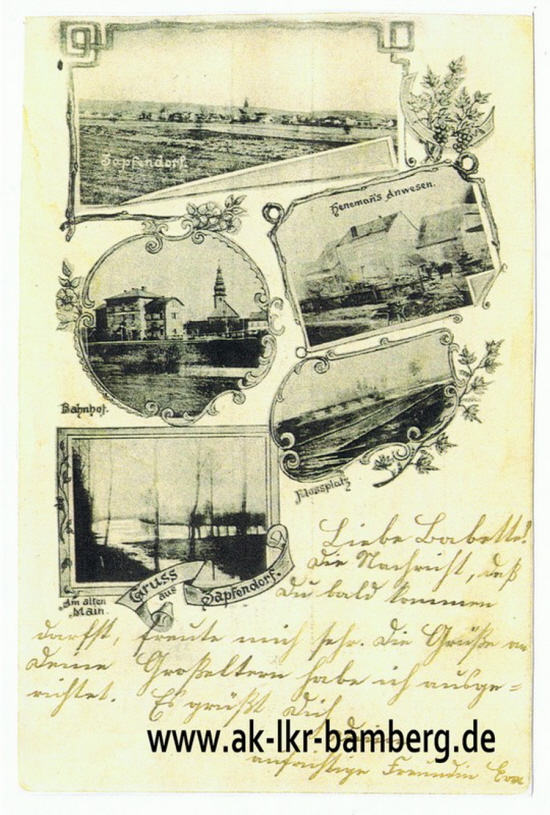 Zapfendorf.
Heneman's Anwesen.
Bahnhof.
Flossplatz
Am alten
Main.
Gruss
aus
Zapfendorf.
Liebe Babette!
Die Nachricht, daß
Du bald kommen
darfst, freute mich sehr. Die Grüße an
Deine Großeltern habe ich ausge=
richtet. Es grüßt Dich
www.ak-lkr-bamberg.de
aufrichtige Freundin Eva